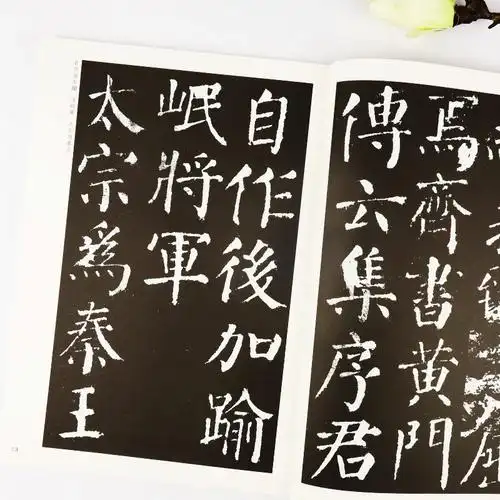 焉齊書黄門
傳云集序君
自作後加踰
岷將軍
太宗爲秦王